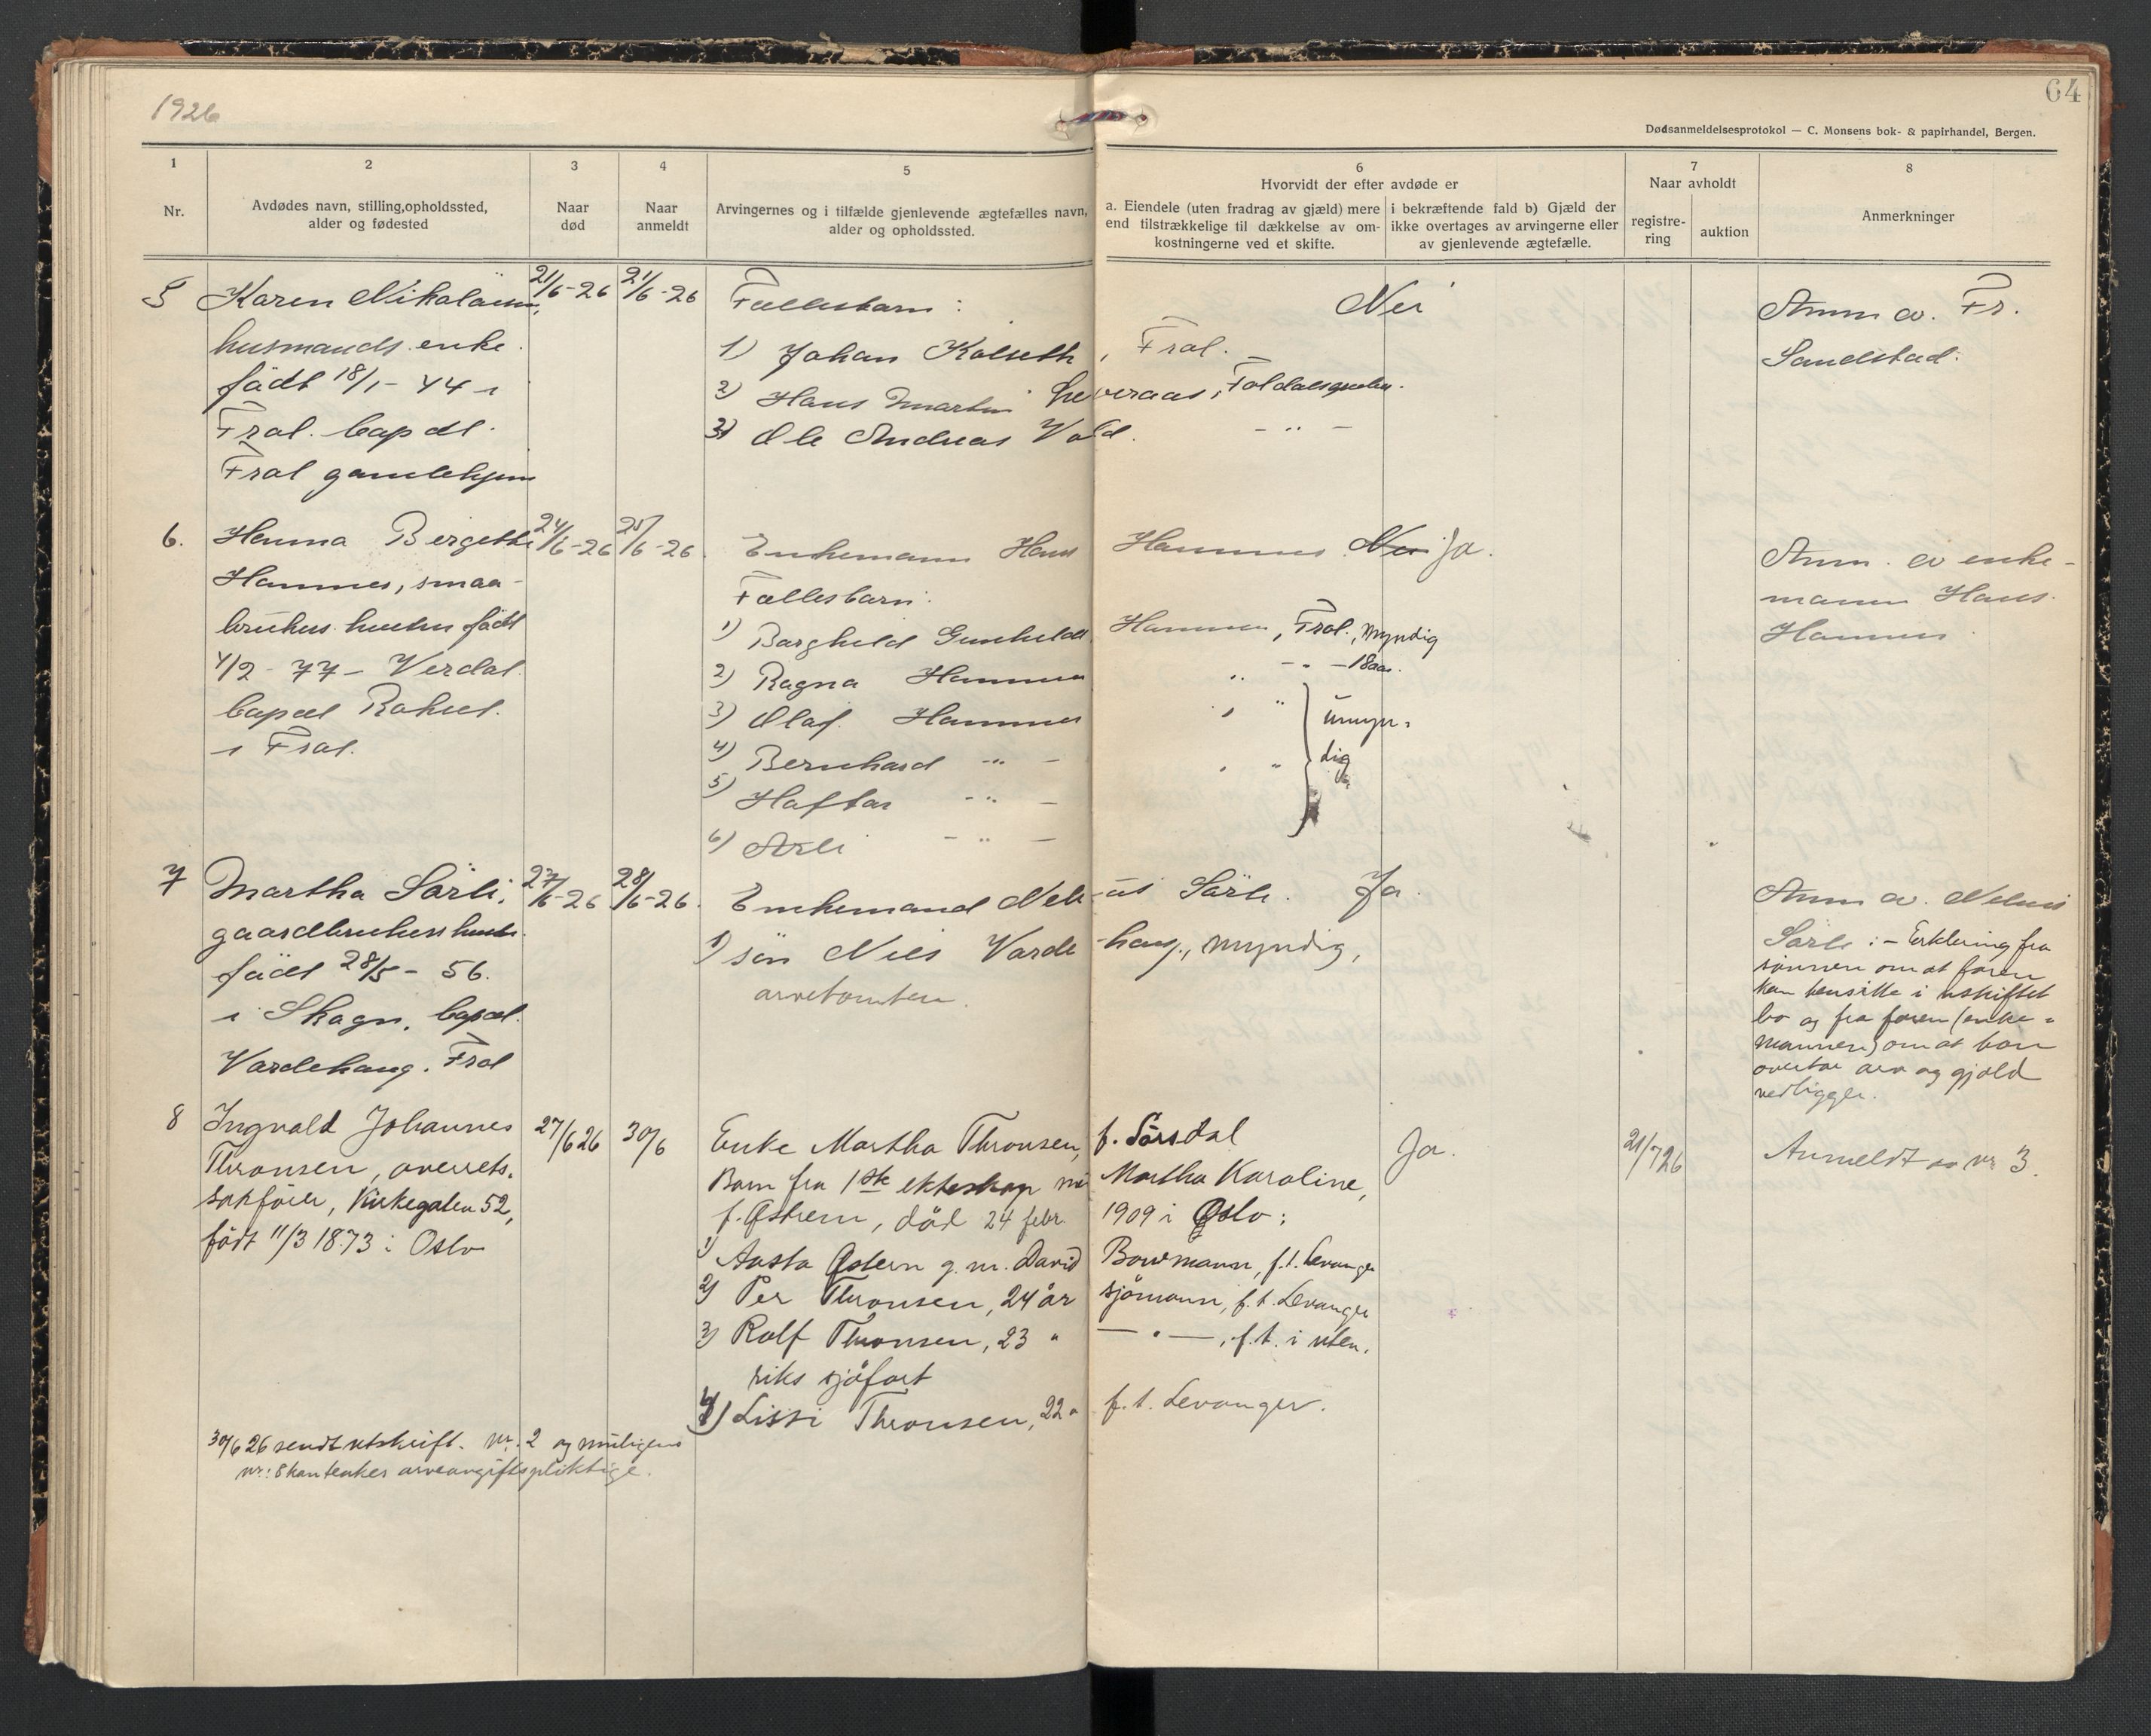 1926
64
Dødsanmeldelsesprotokol — C. Monsens bok- & papirhandel, Bergen.
1
Nr.
2
Avdødes navn, stilling, opholdssted,
alder og fødested
3
Naar
død
4
Naar
anmeldt
5
Arvingernes og i tilfælde gjenlevende ægtefælles navn,
alder og opholdssted.
6
Hvorvidt der efter avdøde er
a. Eiendele (uten fradrag av gjæld) mere
end tilstrækkelige til dækkelse av om-
kostningerne ved et skifte.
i bekræftende fald b) Gjæld der
ikke overtages av arvingerne eller
av gjenlevende ægtefælle.
7
Naar avholdt
registre-
ring
auktion
8
Anmerkninger
5
Karen Nikolaisen,
husmands enke.
född 18/1 - 44 i
Frol. bopæl.
Frol gamlehjem
21/6-26
21/6-26
Fællesbarn:
1) Johan Kolseth, Frol.
2) Hans Martin Leveraas,
3) Ole Andreas Vold. - " -
Nei
Anm av. Fr.
Sandstad.
6.
Hanna Bergette
Hammes, smaa-
brukers hustru född
4/2 - 77 - Verdal.
bopæl
i Frol.
24/6-26
25/6-26.
Enkemann Hans Hammer
Fællesbarn.
1) Borghild Gunhilda Hammer, Frol., myndig
2) Ragna Hammer " - " - 18 aar.
3) Olaf. Hammer " "
4) Bernhard - " - " "
5) Haftor - " -
6) Arli - " -
umyn-
dig
Nei Ja.
Anm. av enke-
mann Hans
Hammer
7
Martha Sörli,
gaardbrukers hustr.
födt 28/5 - 56.
i Skogn, bopæl.
Vardehaug. Frol
27/6-26
28/6-26.
Enkemand Nelius Sörli.
1) sön Nils Vardehaug., myndig,
arvetomten.
Ja.
Anm av. Nelius
Sörli: - Erklæring fra
sönnen om at faren
kan hensitte i uskiftet
bo og fra faren (enke-
mannen) om at han
overtar arv og gjæld
vedligger.
8
Ingvald Johannes
Thronsen, overrets-
sakförer, Kirkegaten 52,
födt 11/3 1873 i Oslo
27/6 26
30/6
Enke Martha Thronsen, f. Sörsdal
Barn fra 1ste ekteskap m Martha Karoline,
f. Østrem, död 24 febr. 1909 i Oslo:
1) Aasta Østern g. m. David Bowmann, f.t. Levanger
2) Per Thronsen, 24 år sjömann, f.t. Levanger
3) Rolf Thronsen, 23 " — " —, f.t. i uten-
riks sjöfart
4) Lissi Thronsen, 22 " f.t. Levanger.
Ja.
21/7 26
Anmeldt av nr 3.
30/6 26 sendt utskrift. Nr. 2 og muligens
nr: 8 kan tenkes arveavgiftspliktige.